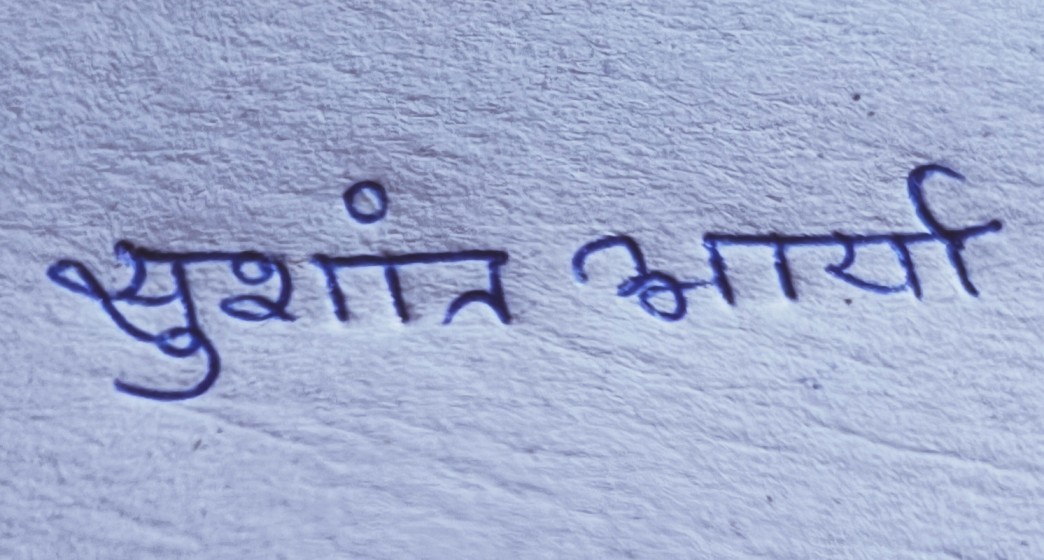 सुशांत आर्या